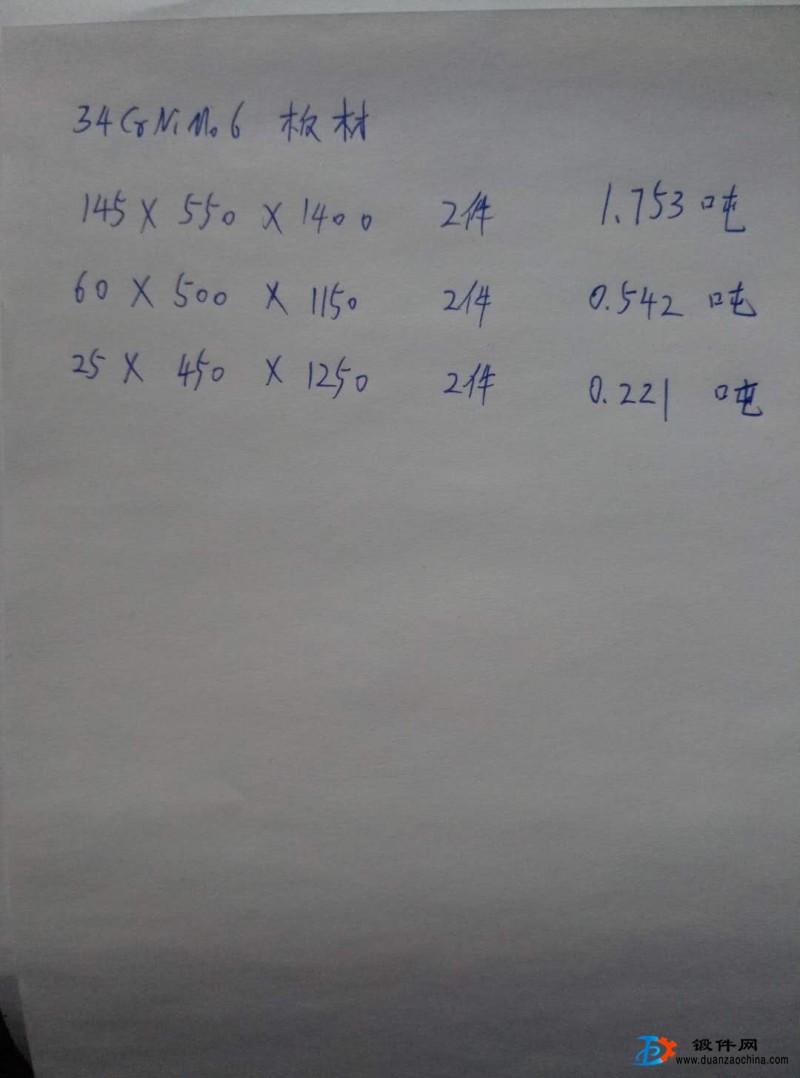 34CrNiMo6 板材
145 X 550 X 1400 2件 1.753 吨
60 X 500 X 1150 2件 0.542 吨
25 X 450 X 1250 2件 0.221 吨
锻件网
www.duanzaochina.com